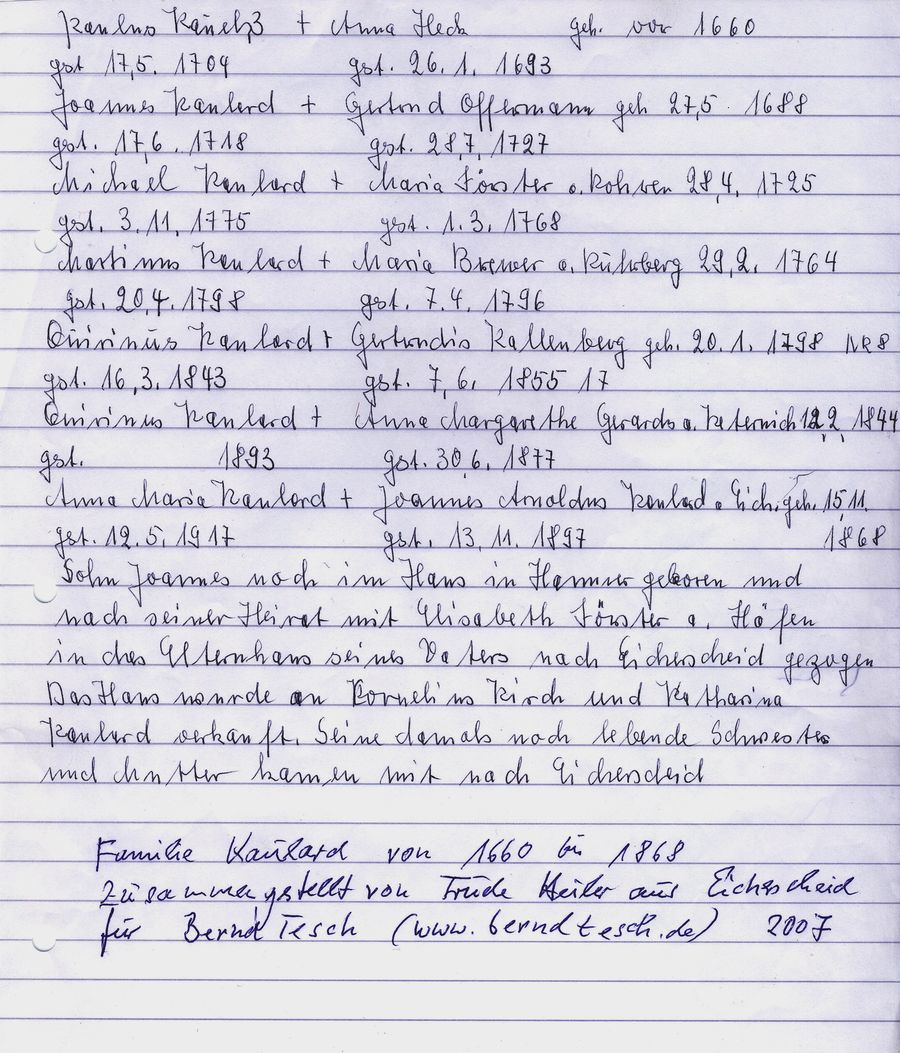 Paulus Käuel,3 + Anna Heck geh. vor 1660
gst 17,5. 1704 gst. 26. 1. 1693
Joannes Kaulard + Gertrud Offermann geh 27,5. 1688
gst. 17,6. 1718 gst. 28,7, 1727
Michael Kaulard + Maria Förster a. Rohren 28,4. 1725
gst. 3. 11, 1775 gst. 1. 3. 1768
Martinus Kaulard + Maria Brewer a. Rührberg 29,2. 1764
gst. 20,4. 1798 gst. 7. 4. 1796
Quirinus Kaulard + Gertrudis Kallenberg geh. 20. 1. 1798 NR 8
gst. 16,3. 1843 gst. 7,6. 1855 17
Quirinus Kaulard + Anna Margarethe Gerards a. Paternich 2. 1844
gst. 1893 gst. 30,6. 1877
Anna Maria Kaulard + Joannes Arnoldus Kaulard a Eich. geh. 15,11.
gst. 12. 5. 1917 gst. 13. 11. 1897 1868
Sohn Joannes noch im Haus in Hammer geboren und
nach seiner Heirat mit Elisabeth Förster a. Höfen
in das Elternhaus seines Vaters nach Eicherscheid gezogen
Das Haus wurde an Kornelius Kirch und Katharina
Kaulard verkauft. Seine damals noch lebende Schwester
und Mutter kamen mit nach Eicherscheid
Familie Kaulard von 1660 bis 1868
Zusammengestellt von Trude aus Eicherscheid
für Bernd Tesch (www.berndtesch.de) 2007